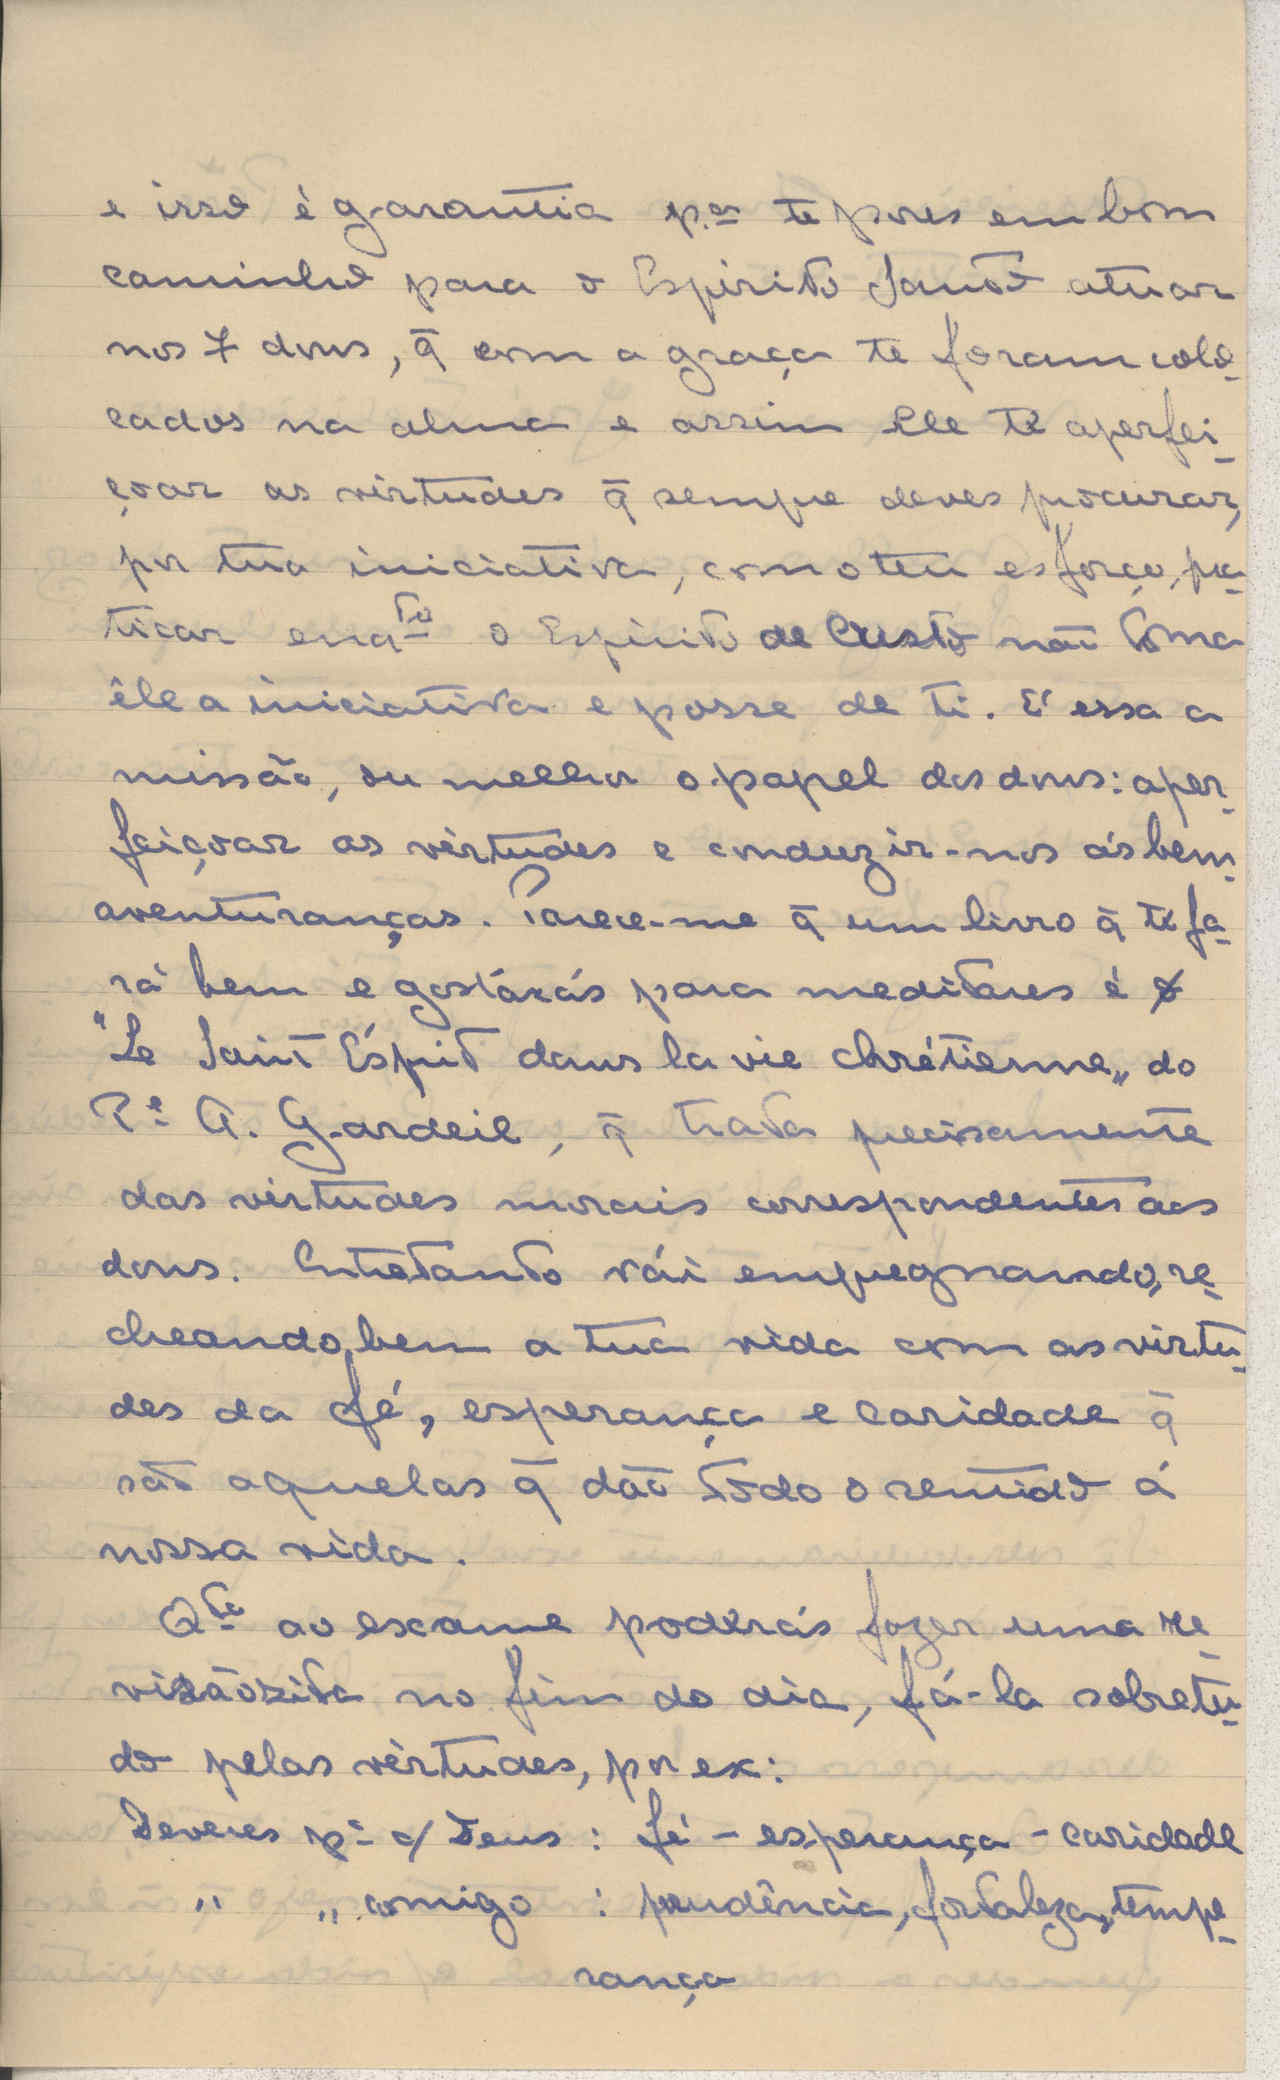 e isso é garantia p.ª te pores em bom
caminho para o Espirito Santo atuar
nos 7 dons, q̄ com a graça te foram colo-
cados na alma e assim Ele te aperfei-
çoar as virtudes q̄ sempre deves procurar,
por tua iniciativa, com o teu esforço, pra-
ticar enqto o Espirito de Cristo não toma
êle a iniciativa e posse de ti. E' essa a
missão, ou melhor o papel dos dons: aper-
feiçoar as virtudes e conduzir-nos ás bem-
aventuranças. Parece-me q̄ um livro q̄ te fa-
rá bem e gostárás para meditares é o
"Le Saint Éspit dans la vie chrétienne„ do
Pe A. Gardeil, q̄ trata precisamente
das virtudes morais correspondentes aos
dons. Entretanto vái empregnando, re-
cheando, bem a tua vida com as virtu-
des da fé, esperança e caridade q̄
são aquelas q̄ dão todo o sentido á
nossa vida.
Qto ao exame poderás fazer uma re-
visãozita no fim do dia, fá-la sobretu-
do pelas virtudes, por ex:
Deveres p.ª c/ Deus : fé - esperança - caridade
" " comigo : prudência, fortaleza, tempe-
rança